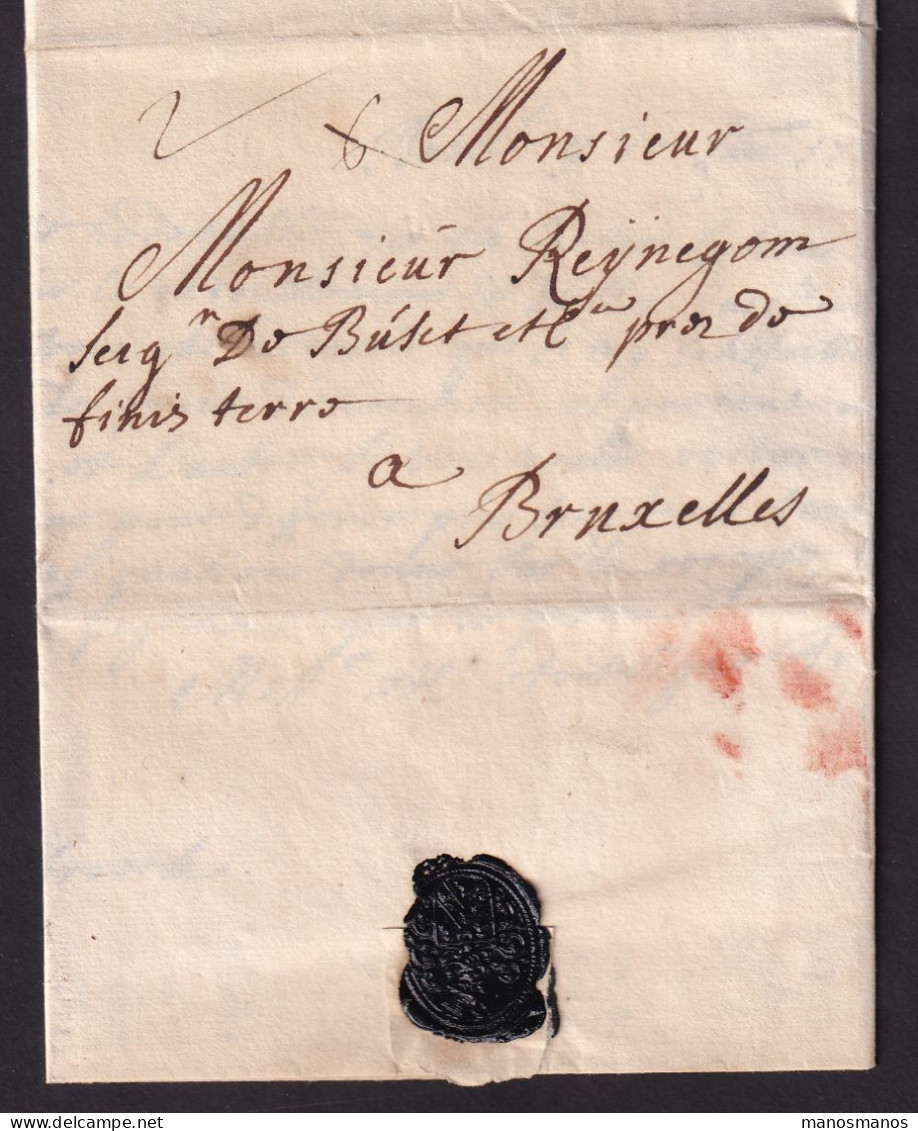 2 & Monsieur
Monsieur Reÿnegom
seig.r De Buset etc.a pres de
finis terre
a
Bruxelles
manosmanos